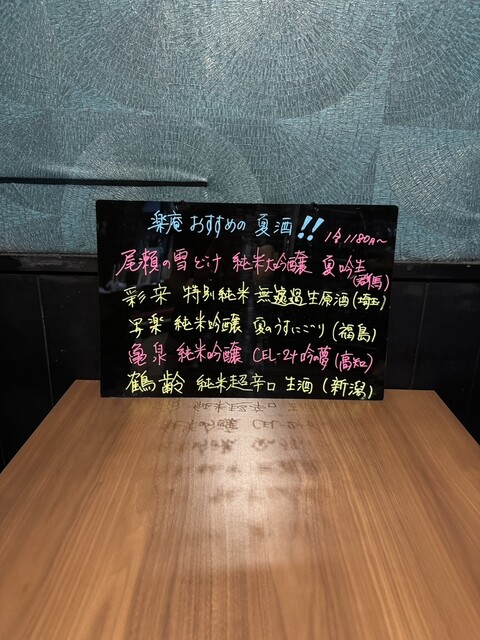 楽庵おすすめの夏酒!! 1合1180円~
尾瀬の雪どけ 純米大吟醸 夏吟生(群馬)
彩來 特別純米 無濾過生原酒(埼玉)
写楽 純米吟醸 夏のうすにごり(福島)
亀泉 純米吟醸 CEL-24 吟の夢(高知)
鶴齢 純米超辛口 生酒(新潟)